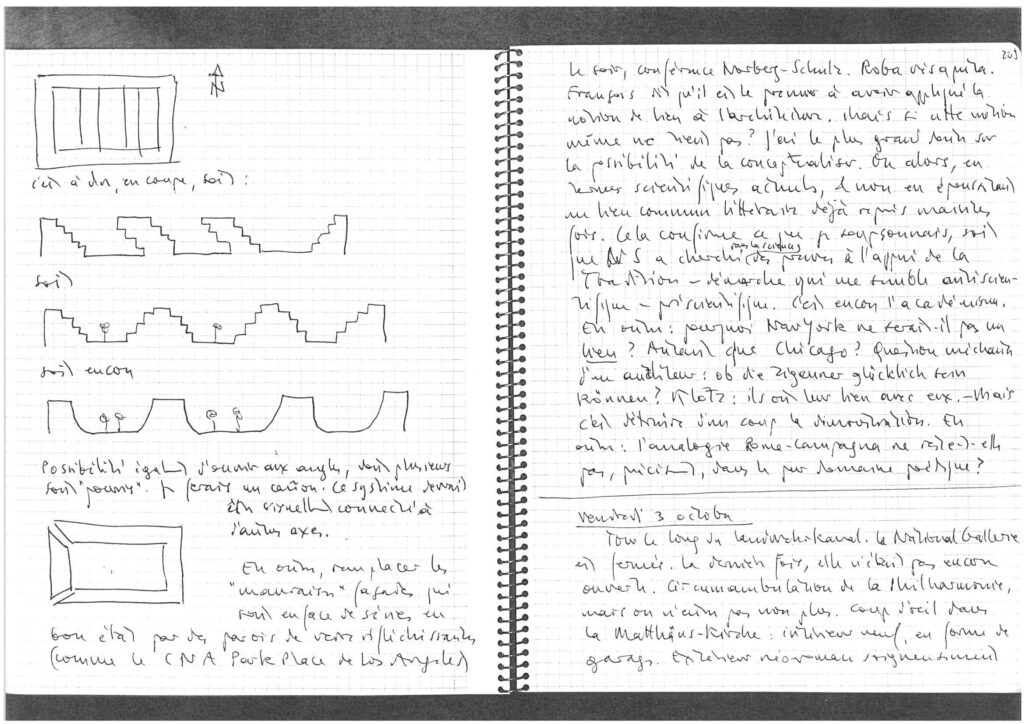 N
c'est à dire, en coupe, soit :
soit
soit encore
Possibilité également d'ouvrir aux angles, dont plusieurs
sont "pourris". Je ferais un canon. Ce système devrait
être visuellement connecté à
d'autres axes.
En outre, remplacer les
"mauvaises" façades qui
sont en face de séries en
bon état par des parois de verre réfléchissantes
(comme le CNA Park Place de Los Angeles)
203
Le soir, conférence Norberg-Schulz. Roba risaputa.
François dit qu'il est le premier à avoir appliqué la
notion de lieu à l'architecture. Mais si cette notion
même ne tient pas? J'ai le plus grand doute sur
la possibilité de la conceptualiser. Ou alors, en
termes scientifiques actuels, et non en époussetant
un lieu commun littéraire déjà repris maintes
fois. Cela confirme ce que je soupçonnais, soit
que S a cherché dans la science des preuves à l'appui de la
Tradition – démarche qui me semble antiscien-
tifique – préscientifique. C'est encore l'académisme.
En outre : pourquoi New York ne serait-il pas un
lieu? Autant que Chicago? Question méchante
d'un auditeur : ob die Zigeuner glücklich sein
können? Klotz : ils ont leur lieu avec eux. – Mais
c'est détruire d'un coup la démonstration. En
outre : l'analogie Rome-Campagna ne reste-t-elle
pas, précisément, dans le pur domaine poétique?
Vendredi 3 octobre
Tout le long du Landwehrkanal. La National Gallerie
est fermée. La dernière fois, elle n'était pas encore
ouverte. Circumambulation de la Philharmonie,
mais on n'entre pas non plus. Coup d'œil dans
la Matthäus-Kirche : intérieur neuf, en forme de
garage. Extérieur néo-roman soigneusement